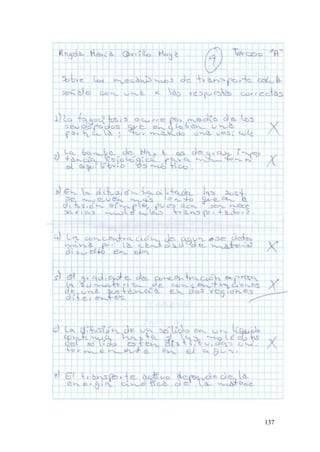 Angela Maria Carrillo Moya 9 Tercero "A"
Sobre los mecanismos de transporte celular
señale con una x las respuestas correctas
1) La fagocitosis ocurre por medio de los
seudópodos que engloban una X
partícula; formando una vesícula
2) La bomba de Na y K es de gran impor
tancia fisiológica para mantener X
el equilibrio osmótico
3) En la difusión facilitada las sust.
se mueven más lento que en la
difusión simple, pues acá son nece
sarias moléculas transportador
4) La concentración de agua se deter
mina por la cantidad de material X
disuelto en ella
5) El gradiente de concentración expresa
la sumatoria de concentraciones X
de una sustancia en dos regiones
diferentes.
6) La difusión de un sólido en un líquido
continua hasta q las moléculas X
del sólido estén distribuidas uni
formemente en el agua.
7) El transporte activo depende de la
energía cinética de la materia
137